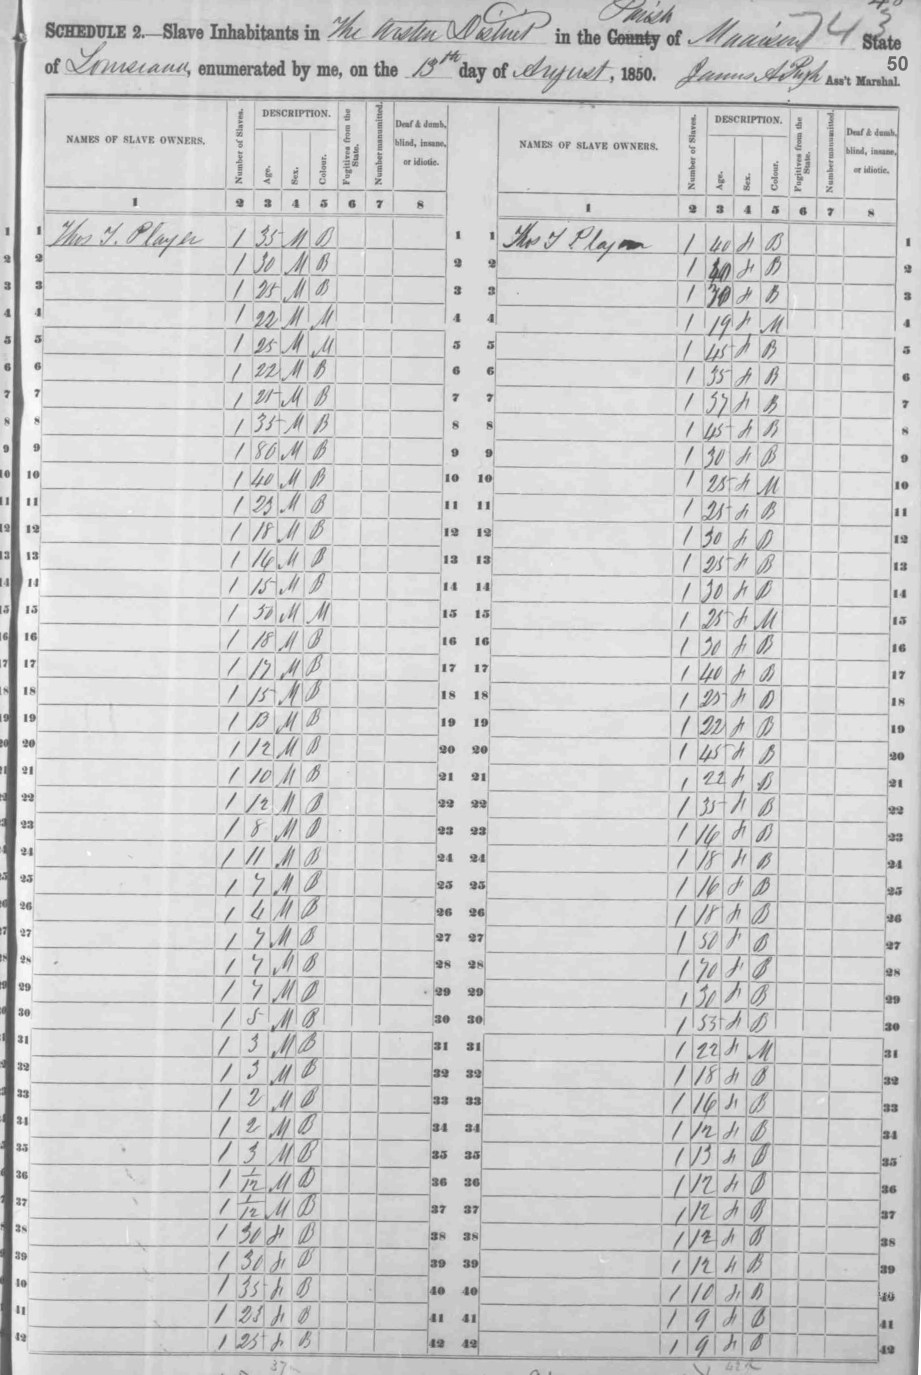 SCHEDULE 2.—Slave Inhabitants in The Western District in the County Parish of Madison State 743
of Louisiana, enumerated by me, on the 13th day of August, 1850. James A Pugh Ass't Marshal. 50
NAMES OF SLAVE OWNERS. Number of Slaves. DESCRIPTION. Age. Sex. Colour. Fugitives from the State. Number manumitted. Deaf & dumb, blind, insane, or idiotic.
1 2 3 4 5 6 7 8
1 Thos T. Player 1 35 M B 1
2 1 30 M B 2
3 1 25 M B 3
4 1 22 M M 4
5 1 25 M M 5
6 1 22 M B 6
7 1 25 M B 7
8 1 35 M B 8
9 1 80 M B 9
10 1 40 M B 10
11 1 23 M B 11
12 1 18 M B 12
13 1 16 M B 13
14 1 15 M B 14
15 1 50 M M 15
16 1 18 M B 16
17 1 17 M B 17
18 1 15 M B 18
19 1 13 M B 19
20 1 12 M B 20
21 1 10 M B 21
22 1 12 M B 22
23 1 8 M B 23
24 1 11 M B 24
25 1 7 M B 25
26 1 4 M B 26
27 1 7 M B 27
28 1 7 M B 28
29 1 7 M B 29
30 1 5 M B 30
31 1 3 M B 31
32 1 3 M B 32
33 1 2 M B 33
34 1 2 M B 34
35 1 3 M B 35
36 1 1/12 M B 36
37 1 1/12 M B 37
38 1 30 F B 38
39 1 30 F B 39
40 1 35 F B 40
41 1 23 F B 41
42 1 25 F B 42
37
NAMES OF SLAVE OWNERS. Number of Slaves. DESCRIPTION. Age. Sex. Colour. Fugitives from the State. Number manumitted. Deaf & dumb, blind, insane, or idiotic.
1 2 3 4 5 6 7 8
1 Thos T Player 1 40 F B 1
2 1 F B 2
3 1 F B 3
4 1 19 F M 4
5 1 45 F B 5
6 1 35 F B 6
7 1 37 F B 7
8 1 45 F B 8
9 1 30 F B 9
10 1 25 F M 10
11 1 25 F B 11
12 1 30 F B 12
13 1 25 F B 13
14 1 30 F B 14
15 1 25 F M 15
16 1 30 F B 16
17 1 40 F B 17
18 1 25 F B 18
19 1 22 F B 19
20 1 45 F B 20
21 1 22 F B 21
22 1 35 F B 22
23 1 16 F B 23
24 1 18 F B 24
25 1 16 F B 25
26 1 18 F B 26
27 1 50 F B 27
28 1 70 F B 28
29 1 30 F B 29
30 1 55 F B 30
31 1 22 F M 31
32 1 18 F B 32
33 1 16 F B 33
34 1 12 F B 34
35 1 13 F B 35
36 1 12 F B 36
37 1 12 F B 37
38 1 12 F B 38
39 1 12 F B 39
40 1 10 F B 40
41 1 9 F B 41
42 1 9 F B 42